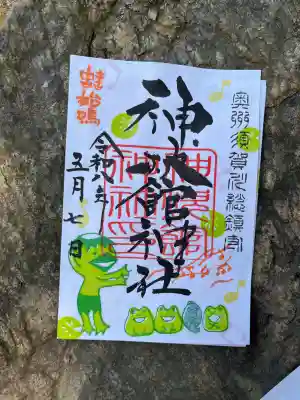 奥州須賀川総鎮守
神炊館神社
令和八年
五月七日
蛙始鳴